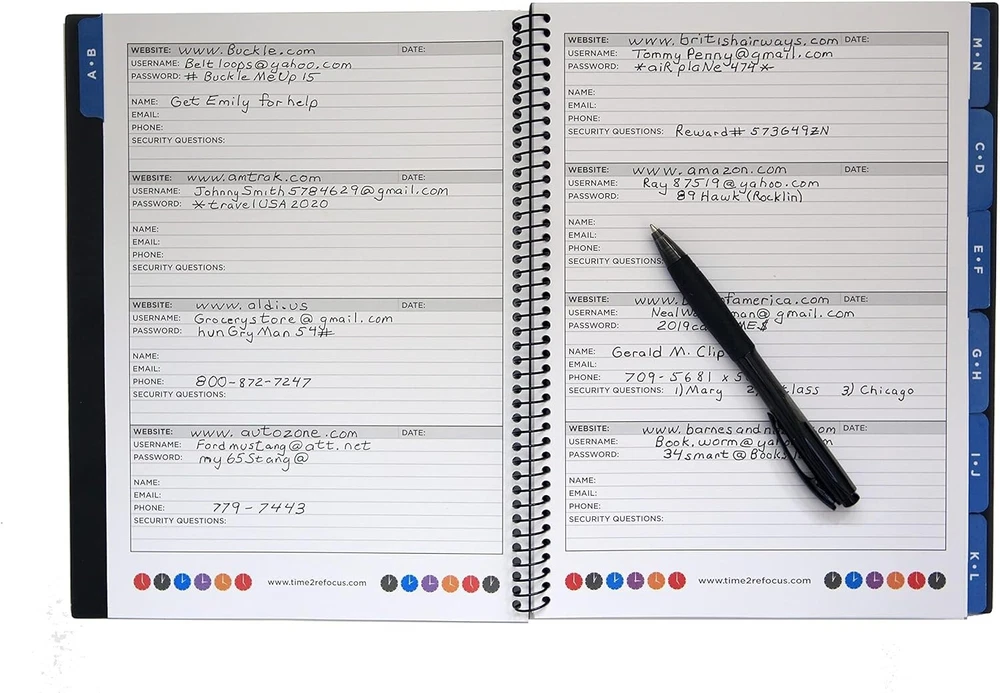 A•B
WEBSITE: www.Buckle.com DATE:
USERNAME: Beltloops@yahoo.com
PASSWORD: # BuckleMeUp15
NAME: Get Emily for help
EMAIL:
PHONE:
SECURITY QUESTIONS:
WEBSITE: www.amtrak.com DATE:
USERNAME: JohnnySmith5784629@gmail.com
PASSWORD: *travelUSA2020
NAME:
EMAIL:
PHONE:
SECURITY QUESTIONS:
WEBSITE: www.aldi.us DATE:
USERNAME: Grocerystore@gmail.com
PASSWORD: hunGryMan54#
NAME:
EMAIL:
PHONE: 800-872-7247
SECURITY QUESTIONS:
WEBSITE: www.autozone.com DATE:
USERNAME: Fordmustang@att.net
PASSWORD: my65Stang@
NAME:
EMAIL:
PHONE: 779-7443
SECURITY QUESTIONS:
www.time2refocus.com
WEBSITE: www.britishairways.com DATE:
USERNAME: TommyPenny@gmail.com
PASSWORD: *aiRplaNe474*
NAME:
EMAIL:
PHONE:
SECURITY QUESTIONS: Reward# 573649ZN
WEBSITE: www.amazon.com DATE:
USERNAME: Ray87519@yahoo.com
PASSWORD: 89Hawk(Rocklin)
NAME:
EMAIL:
PHONE:
SECURITY QUESTIONS:
WEBSITE: DATE:
USERNAME:
PASSWORD:
NAME: Gerald M.
EMAIL:
PHONE: 709-5681 x
SECURITY QUESTIONS: 1) Mary 3) Chicago
WEBSITE: DATE:
USERNAME:
PASSWORD:
NAME:
EMAIL:
PHONE:
SECURITY QUESTIONS:
www.time2refocus.com
M•N
C•D
E•F
G•H
I•J
K•L